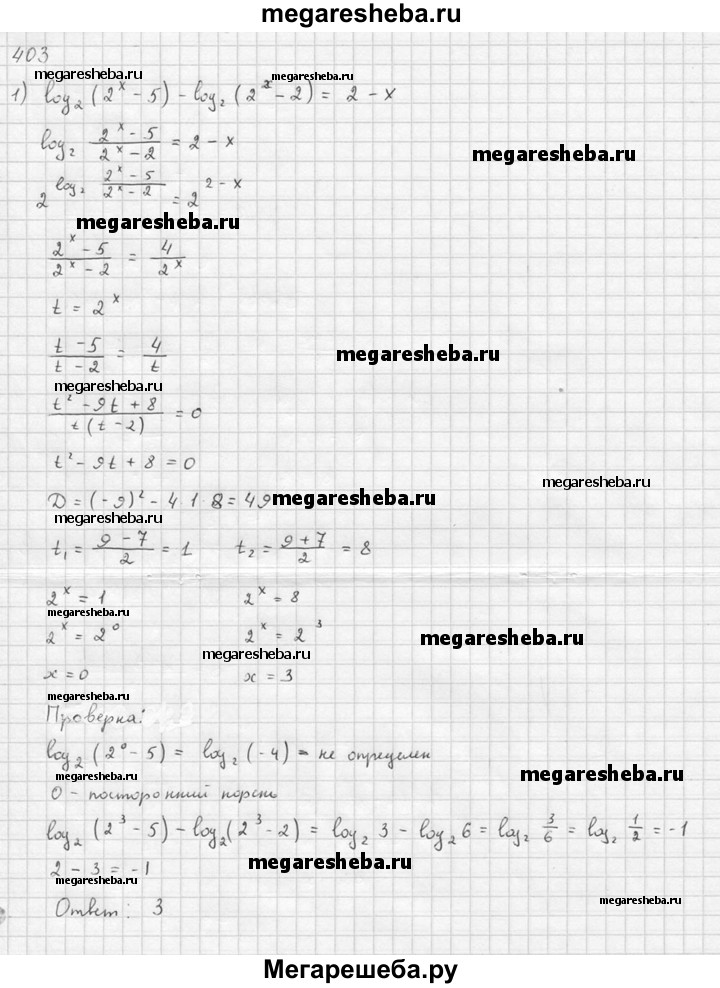 megaresheba.ru
403
megaresheba.ru megaresheba.ru
1) log₂ (2ˣ - 5) - log₂ (2ˣ - 2) = 2 - x
log₂ (2ˣ - 5)/(2ˣ - 2) = 2 - x
megaresheba.ru
2^(log₂ (2ˣ - 5)/(2ˣ - 2)) = 2^(2 - x)
megaresheba.ru
(2ˣ - 5)/(2ˣ - 2) = 4/2ˣ
t = 2ˣ
(t - 5)/(t - 2) = 4/t
megaresheba.ru
megaresheba.ru
(t² - 9t + 8)/(t(t - 2)) = 0
t² - 9t + 8 = 0
megaresheba.ru
D = (-9)² - 4 · 1 · 8 = 49
megaresheba.ru
megaresheba.ru
t₁ = (9 - 7)/2 = 1 t₂ = (9 + 7)/2 = 8
2ˣ = 1 2ˣ = 8
megaresheba.ru
2ˣ = 2⁰ 2ˣ = 2³
megaresheba.ru
megaresheba.ru
x = 0 x = 3
megaresheba.ru
Проверка:
log₂ (2⁰ - 5) = log₂ (-4) - не определен
megaresheba.ru
megaresheba.ru
0 - посторонний корень
log₂ (2³ - 5) - log₂ (2³ - 2) = log₂ 3 - log₂ 6 = log₂ 3/6 = log₂ 1/2 = -1
megaresheba.ru
2 - 3 = -1
megaresheba.ru
megaresheba.ru
Ответ: 3
Мегарешеба.ру